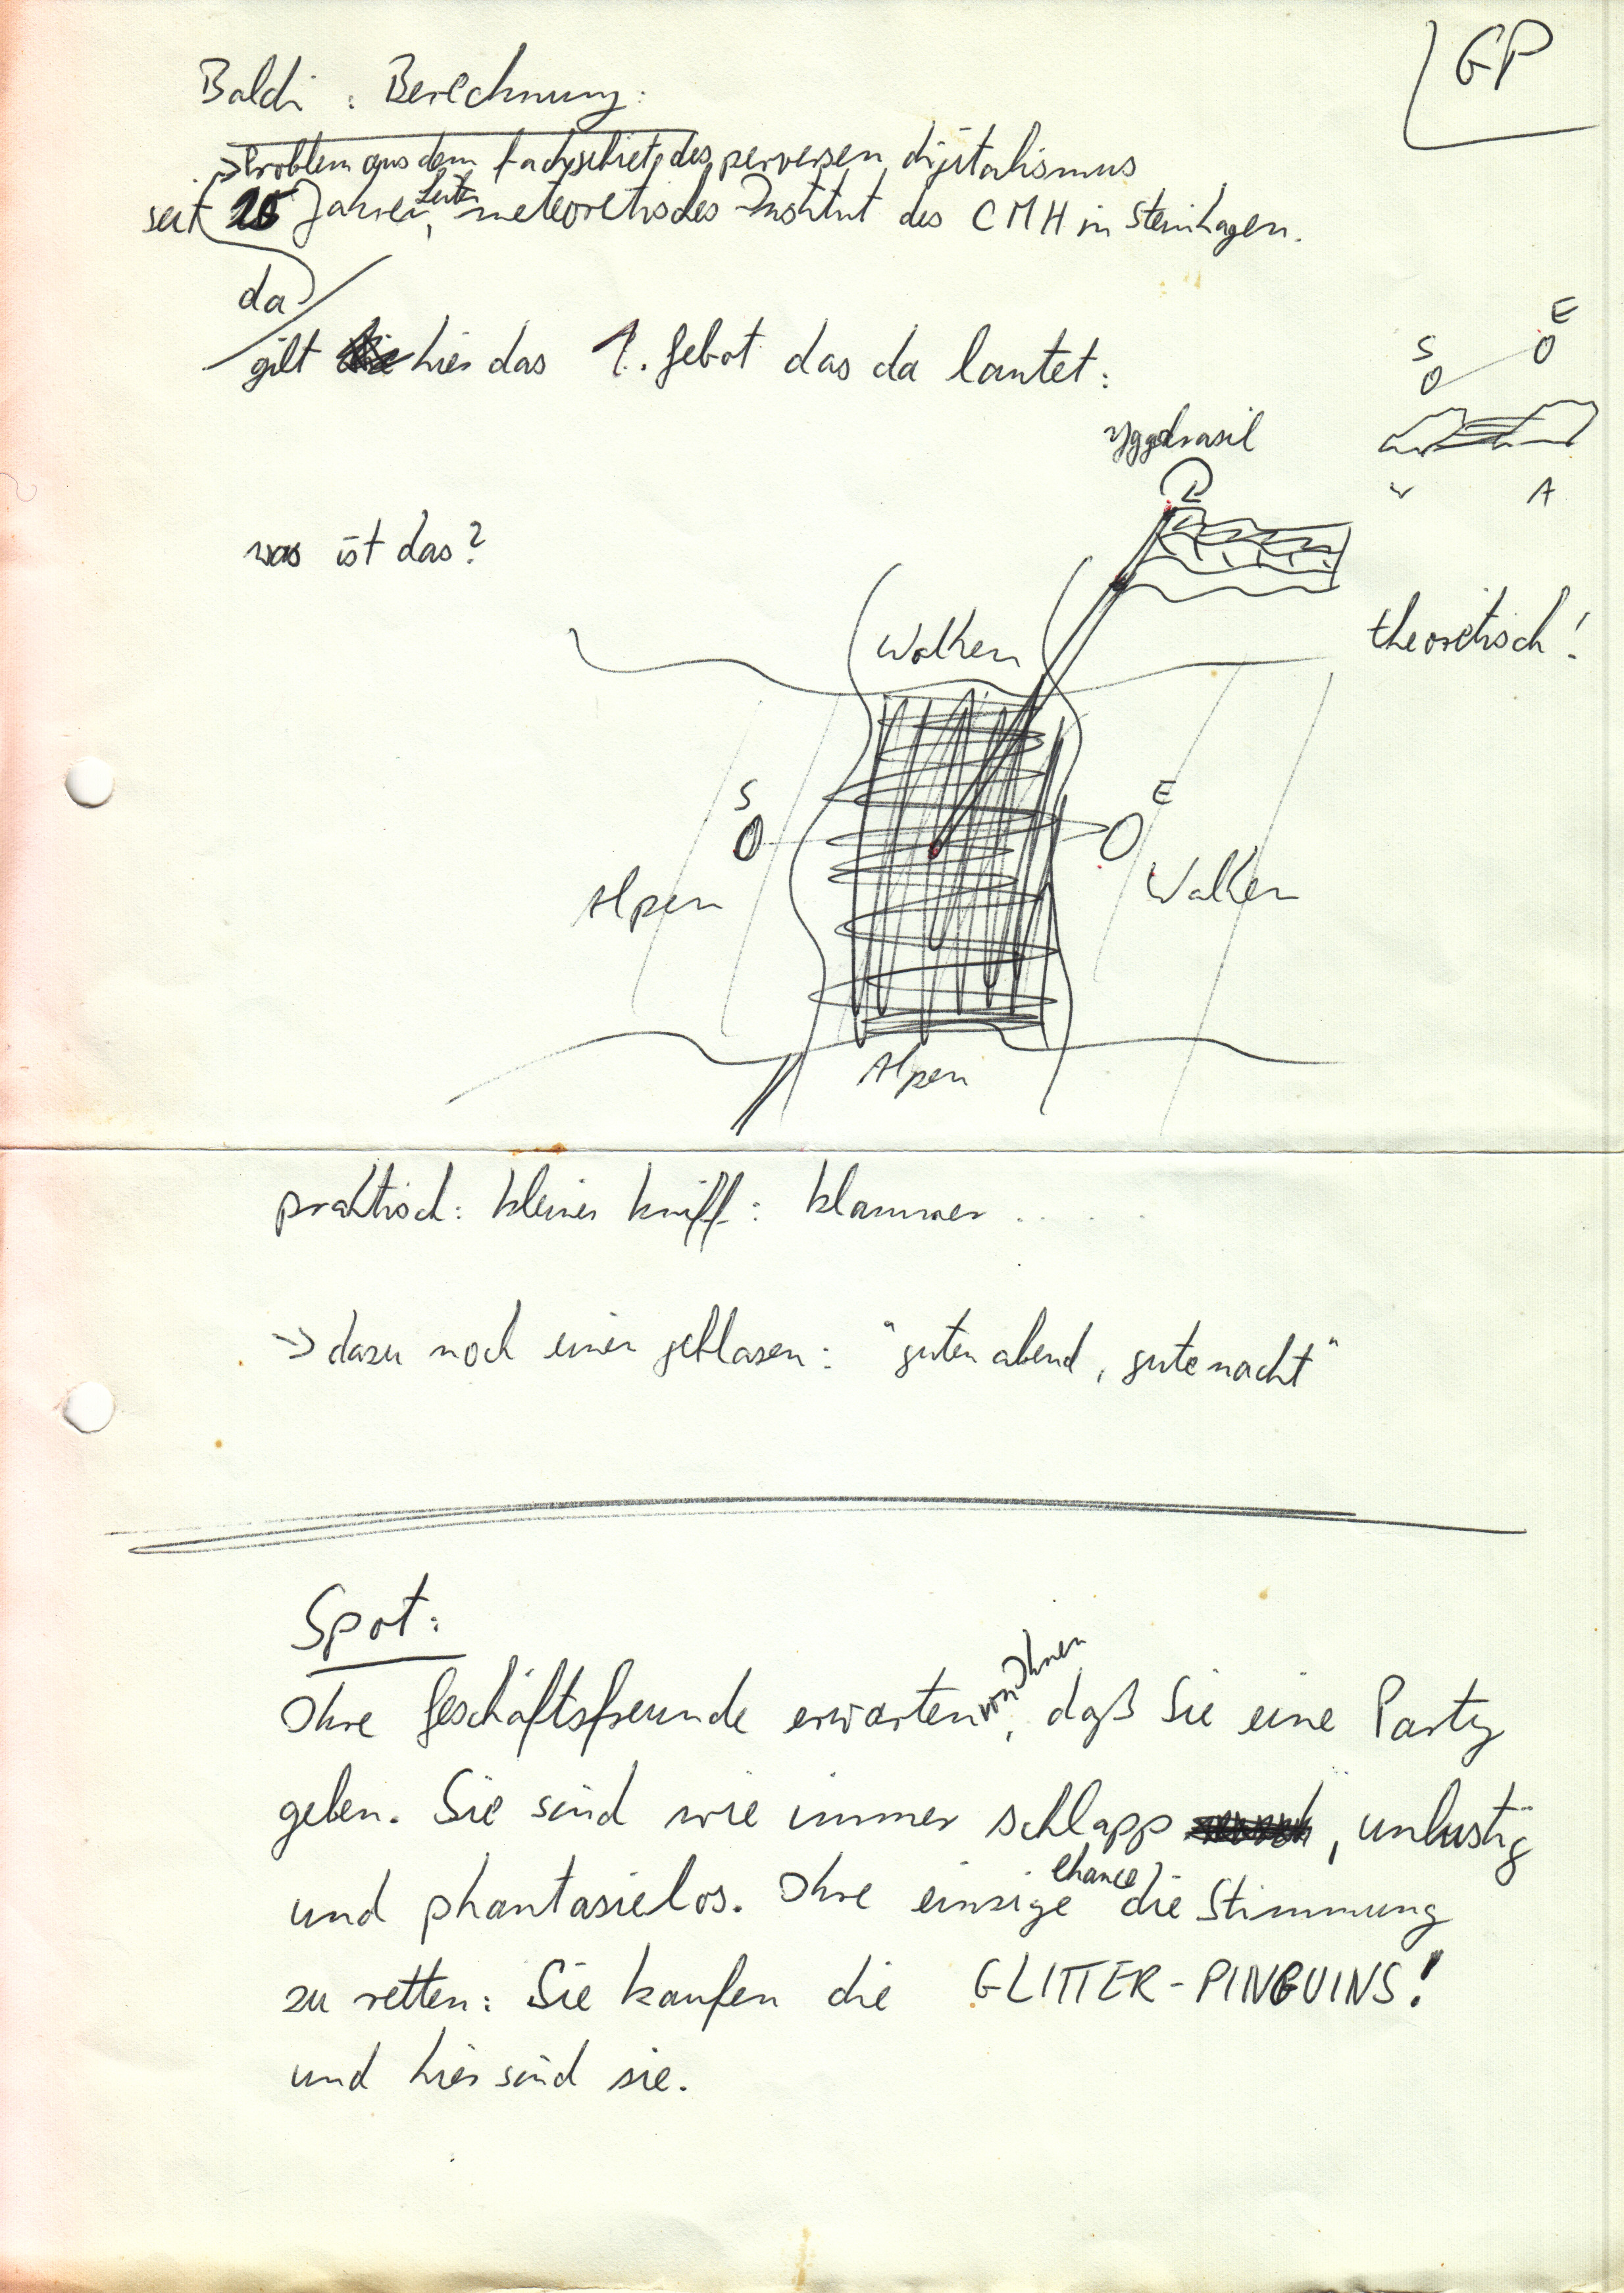 GP
Baldi : Berechnung:
→ Problem aus dem Fachgebiet des perversen digitalismus
seit 25 Jahren, Leiter meteoretisches Institut des CMH in Steinhagen.
da
gilt hier das 1. Gebot das da lautet:
S E
yggdrasil
W A
was ist das?
theoretisch!
Wolken
S E
Alpen Wolken
Alpen
praktisch: kleiner kniff: klammer .....
→ dazu noch einen geblasen: "guten abend, gute nacht"
Spot:
Ihre Geschäftsfreunde erwarten von Ihnen, daß Sie eine Party
geben. Sie sind wie immer schlapp, unlustig
und phantasielos. Ihre einzige chance, die Stimmung
zu retten: Sie kaufen die GLITTER-PINGUINS!
und hier sind sie.